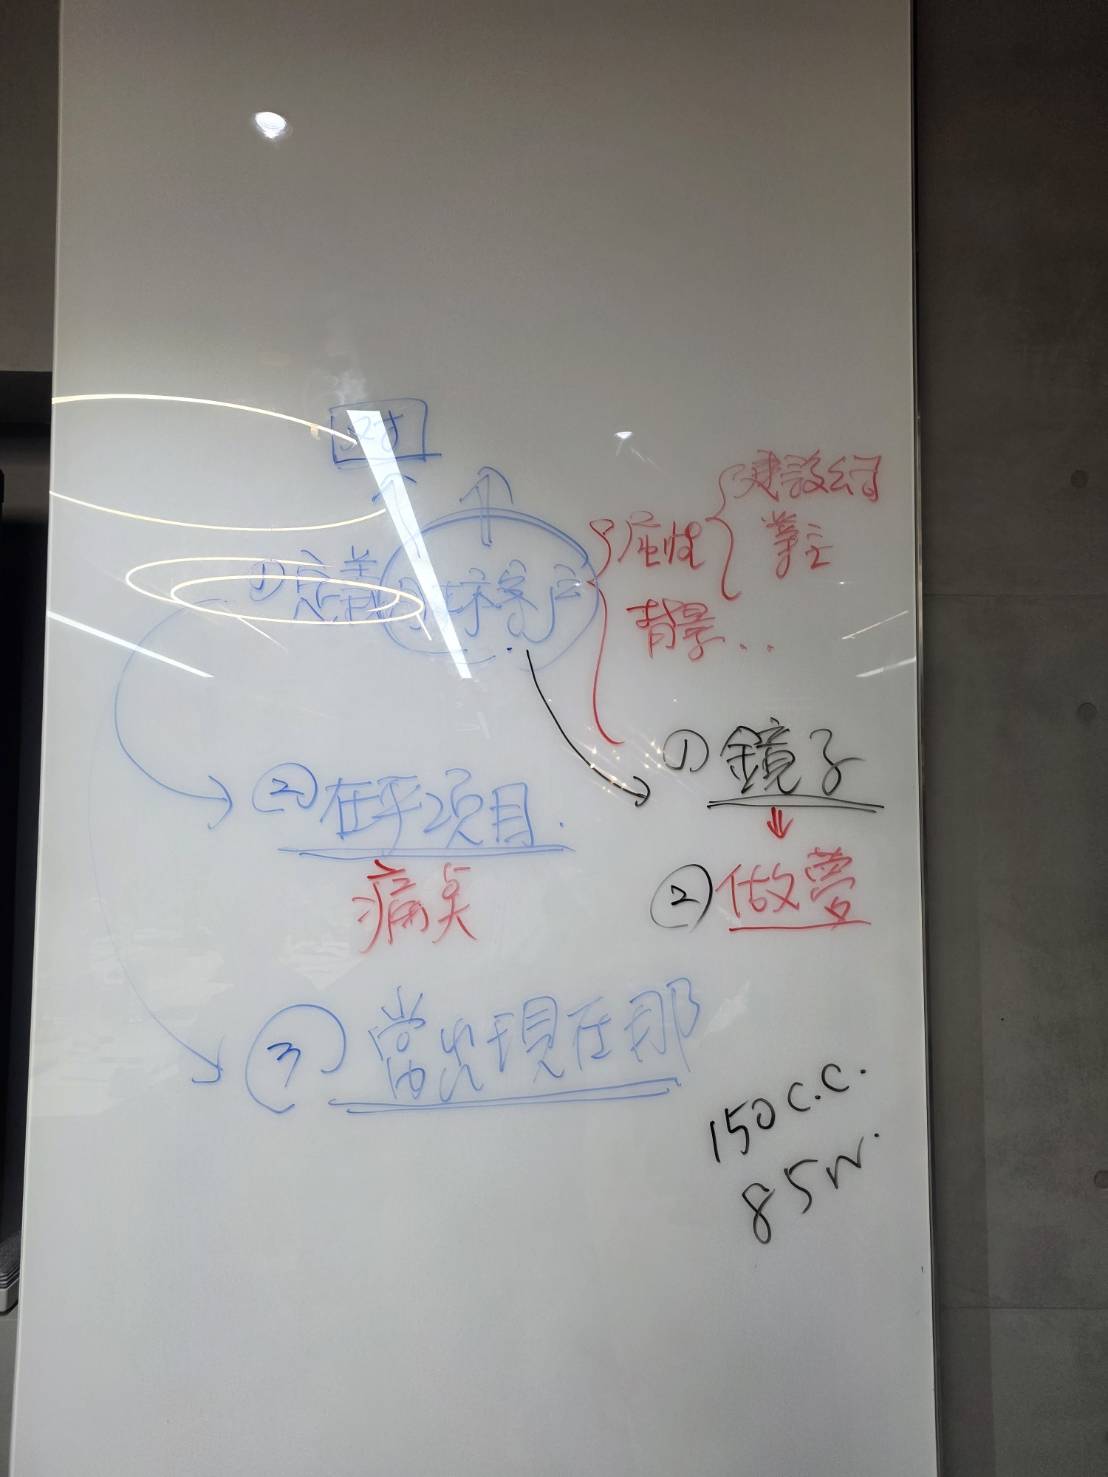 ① 定義
客戶
屬性
建設公司
業主
背景...
② 在乎項目.
痛点
① 鏡子
② 做夢
③ 常出現在那
150 c.c.
85w.